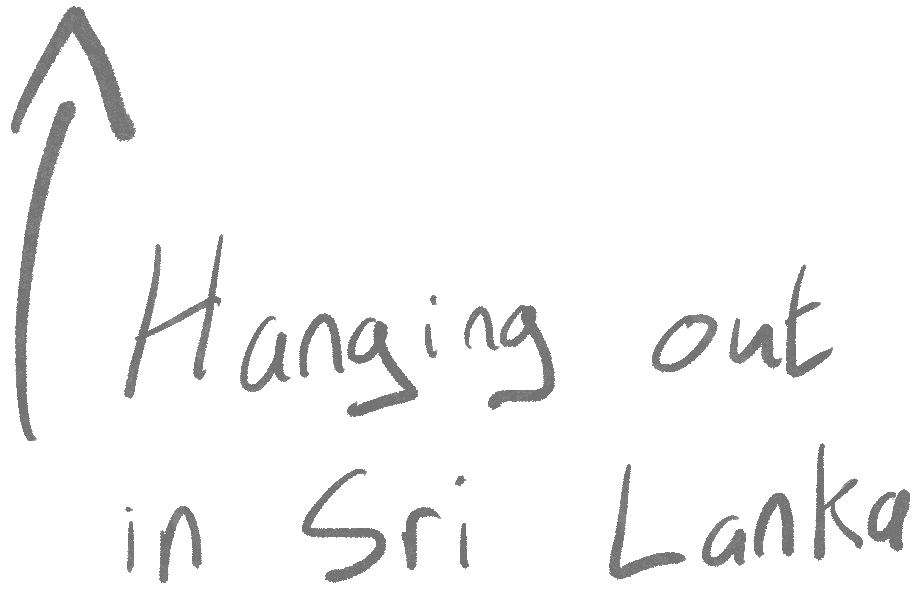 Hanging out
in Sri Lanka